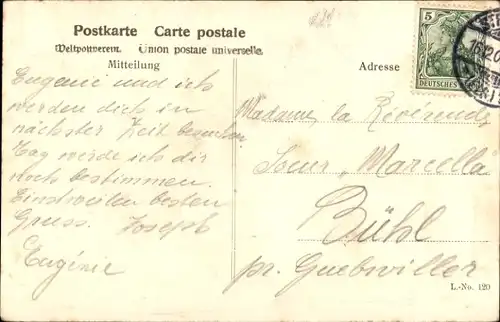 Postkarte Carte postale
Weltpostverein. Union postale universelle.
Mitteilung
Adresse
Eugenie und ich
werden dich in
nächster Zeit besuchen.
Tag werde ich dir
noch bestimmen.
Einstweilen besten
Gruss. Joseph
Eugénie
5
DEUTSCHES
Madame la Révérende
Soeur "Marcella"
Bühl
pr. Guebwiller
L.-No. 120